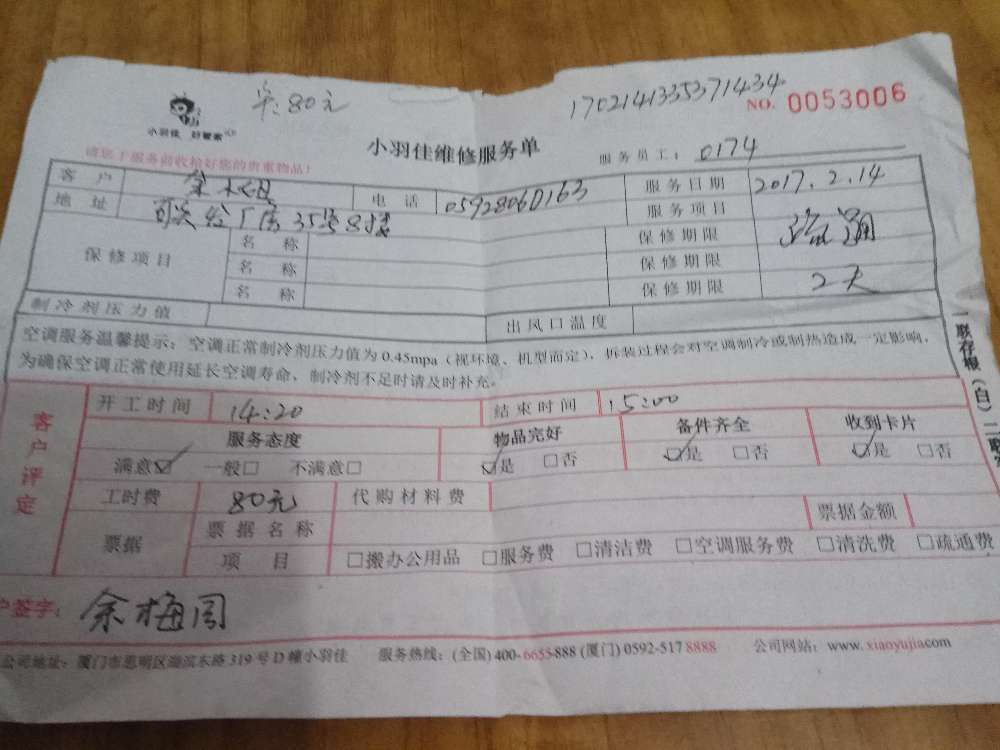 单:80元
1702141335371434
NO. 0053006
小羽佳 好管家
小羽佳维修服务单
服务员工: 0174
请您于服务前收检好您的贵重物品!
客户 电话 05928060163 服务日期 2017.2.14
地址 35号8楼 服务项目 疏通
保修项目 名称 保修期限
名称 保修期限
名称 保修期限 2天
制冷剂压力值 出风口温度
空调服务温馨提示:空调正常制冷剂压力值为0.45mpa(视环境、机型而定),拆装过程会对空调制冷或制热造成一定影响,
为确保空调正常使用延长空调寿命,制冷剂不足时请及时补充。
客户评定
开工时间 14:20 结束时间 15:00
服务态度 物品完好 备件齐全 收到卡片
满意☑ 一般□ 不满意□ ☑是 □否 ☑是 □否 ☑是 □否
工时费 80元 代购材料费
票据 票据名称 票据金额
项目 □搬办公用品 □服务费 □清洁费 □空调服务费 □清洗费 □疏通费
户签字: 余梅周
公司地址:厦门市思明区湖滨东路319号D幢小羽佳 服务热线:(全国)400-6655-888 (厦门)0592-517 8888 公司网站:www.xiaoyujia.com
一联存根(白)二联